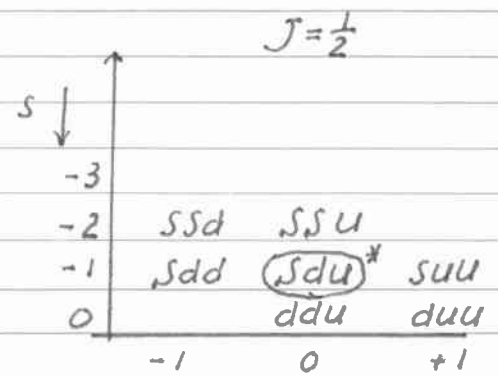 J = 1/2
S ↓
-3
-2 ssd ssu
-1 sdd sdu* suu
0 ddu duu
-1 0 +1